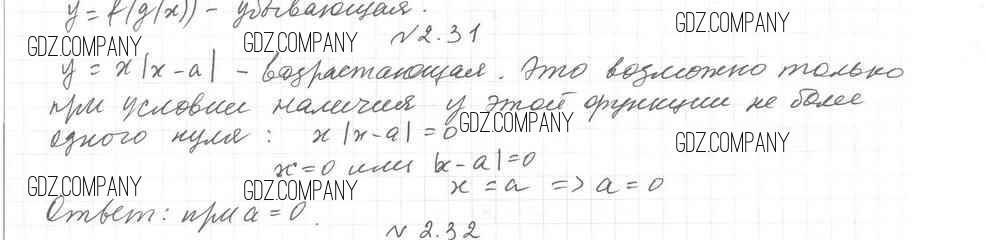 y = f(g(x)) – убывающая.
GDZ.COMPANY
GDZ.COMPANY GDZ.COMPANY № 2.31
y = x|x-a| – возрастающая. Это возможно только
при условии наличия у этой функции не более
одного нуля: x|x-a| = 0 GDZ.COMPANY
GDZ.COMPANY
x=0 или |x-a|=0
GDZ.COMPANY GDZ.COMPANY x = a => a = 0
Ответ: при a = 0.
№ 2.32